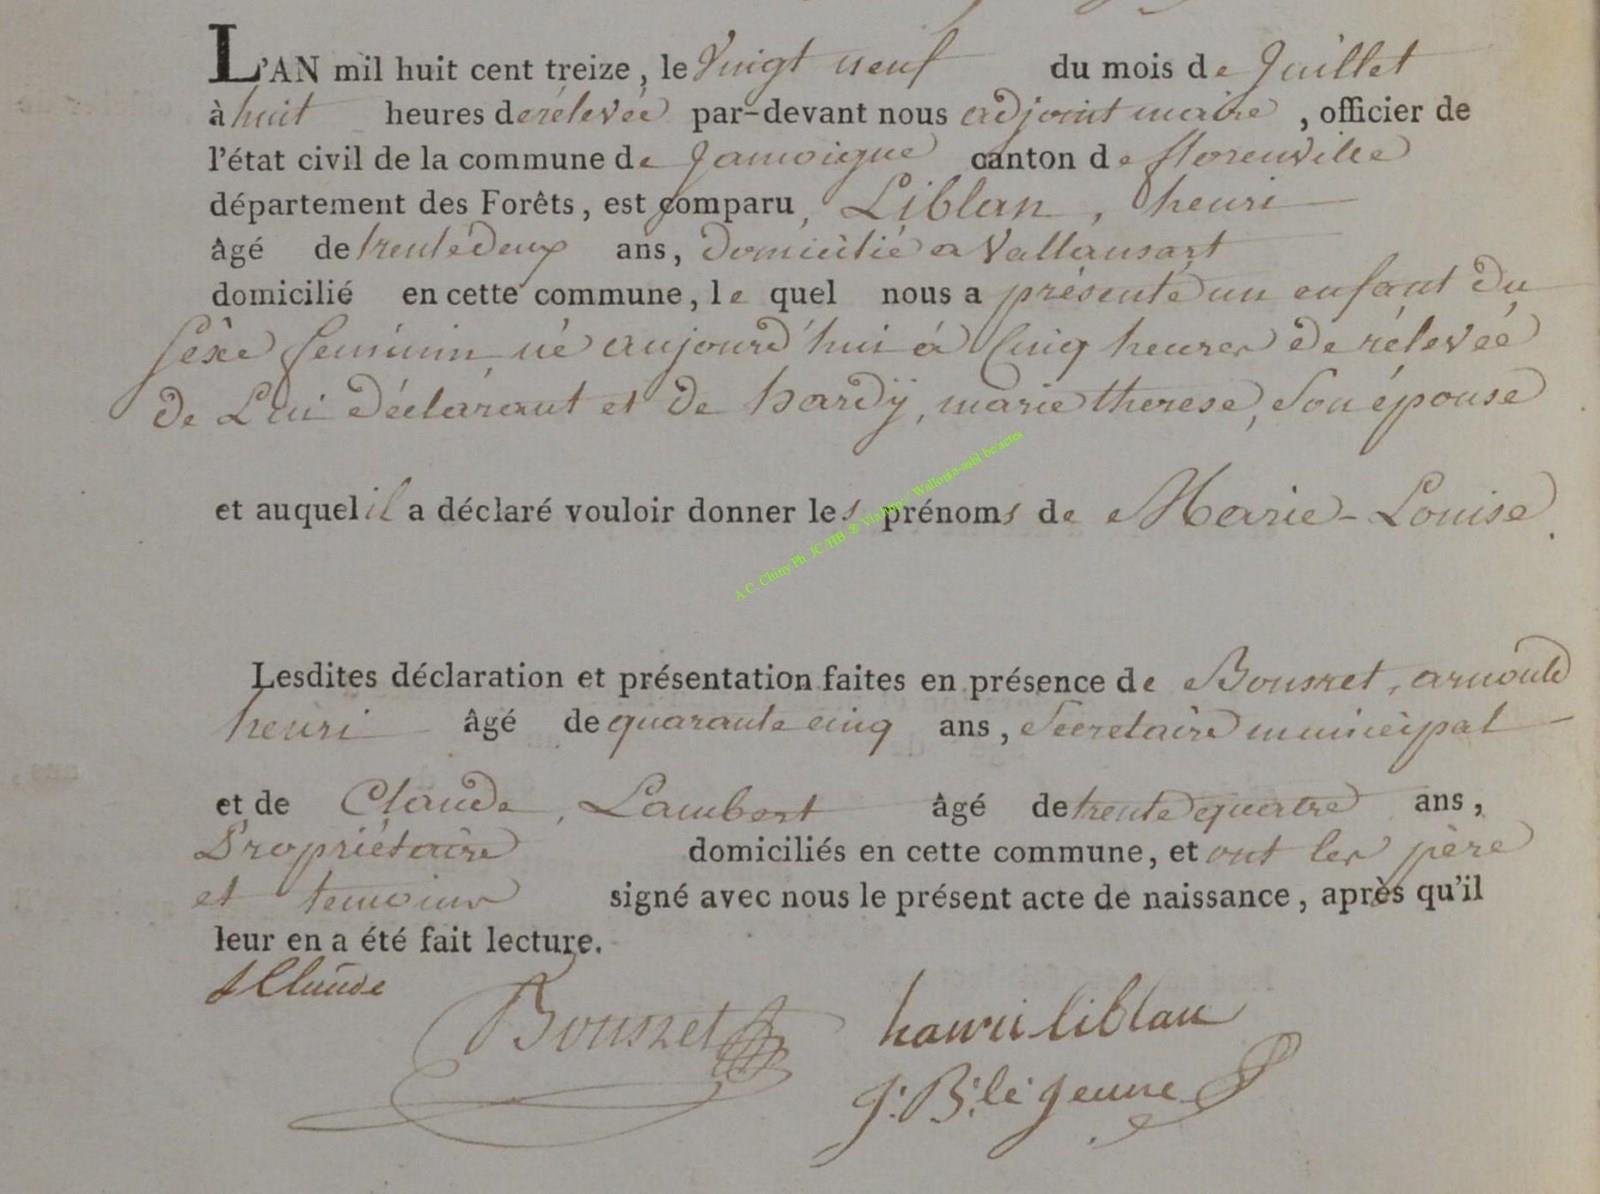 L'AN mil huit cent treize, le Vingt neuf du mois de Juillet
à huit heures de rélevée par-devant nous adjoint maire, officier de
l'état civil de la commune de Jamoigne canton de florenville
département des Forêts, est comparu, Liblan, henri
âgé de trente deux ans, domicilié a Vallansart
domicilié en cette commune, le quel nous a présenté un enfant du
sexe feminin né aujourd'hui à Cinq heures de rélevée
de Lui déclarant et de hardÿ, marie therese, son épouse
et auquel il a déclaré vouloir donner les prénoms de Marie-Louise.
A.C. Chiny Ph. JC/HB ®
Lesdites déclaration et présentation faites en présence de Bousret, arnould
henri âgé de quarante cinq ans, Secretaire municipal
et de Claude, Lambert âgé de trente quatre ans,
Propriétaire domiciliés en cette commune, et ont les père
et temoins signé avec nous le présent acte de naissance, après qu'il
leur en a été fait lecture.
Claude
Bousret
hanri liblan
J: B: le jeune